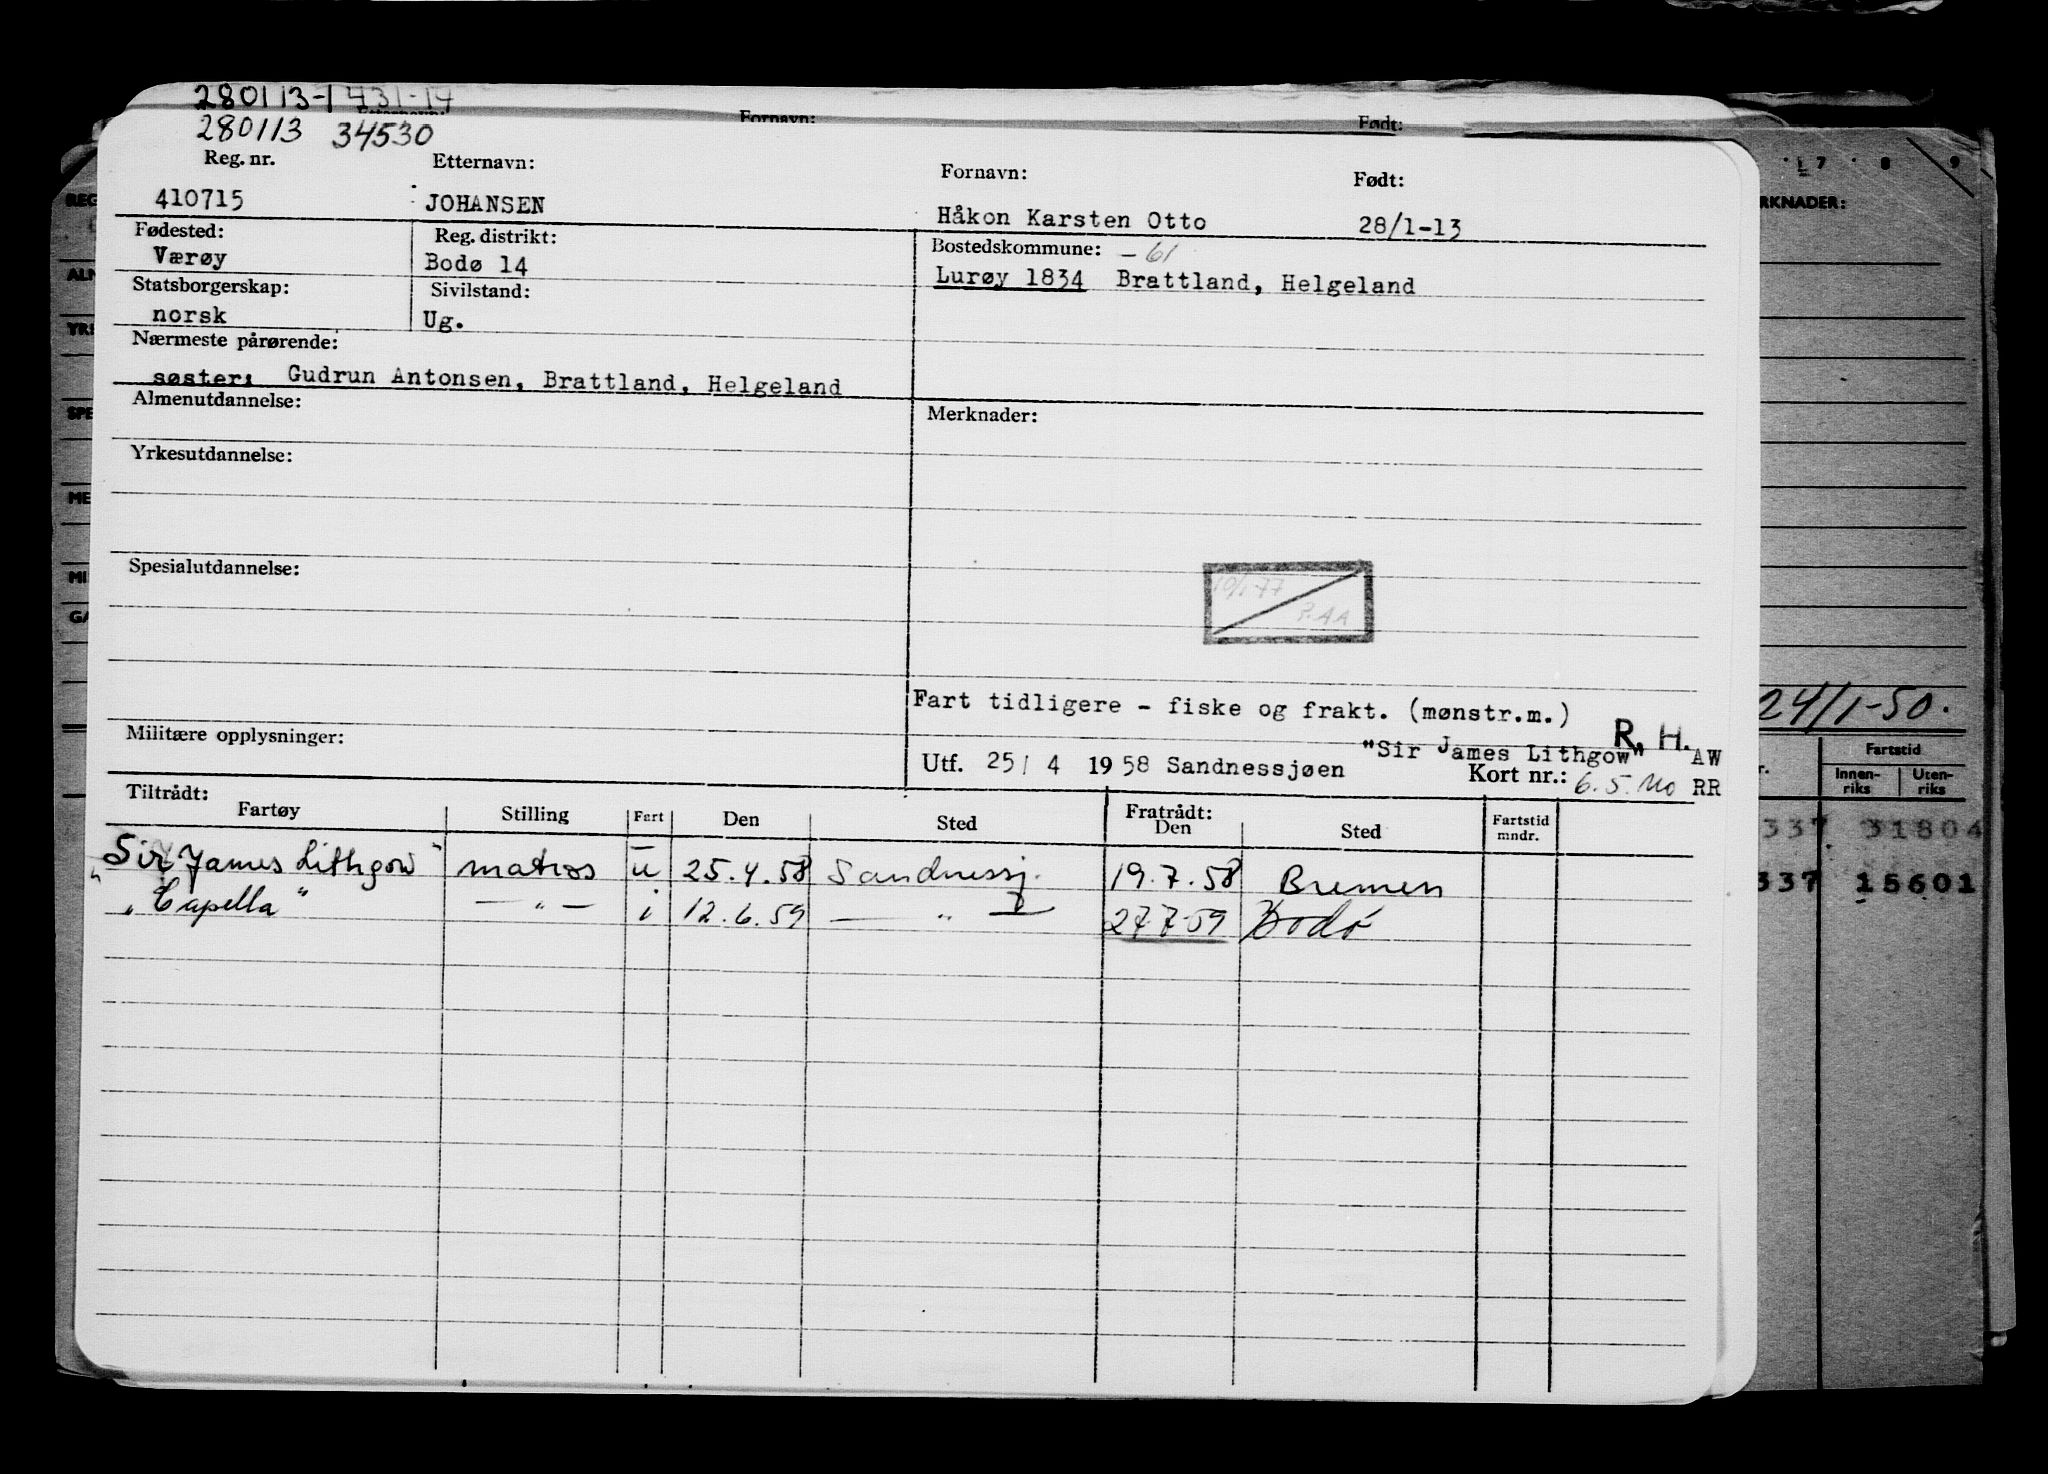 280113-1 431-14
Fornavn: Født:
280113 34530
Reg. nr. Etternavn: Fornavn: Født:
410715 JOHANSEN Håkon Karsten Otto 28/1-13
Fødested: Reg. distrikt: Bostedskommune: -61
Værøy Bodø 14 Lurøy 1834 Brattland, Helgeland
Statsborgerskap: Sivilstand:
norsk Ug.
Nærmeste pårørende:
søster: Gudrun Antonsen, Brattland, Helgeland
Almenutdannelse: Merknader:
Yrkesutdannelse:
Spesialutdannelse:
10/1-77
Fart tidligere - fiske og frakt. (mønstr.m.)
R. H.
Militære opplysninger: "Sir James Lithgow" AW
Utf. 25/4 1958 Sandnessjøen Kort nr.: 6.5. Mo RR
Tiltrådt: Fratrådt:
Fartøy Stilling Fart Den Sted Den Sted Fartstid mndr.
"Sir James Lithgow" matros u 25.4.58 Sandnessj. 19.7.58 Bremen
"Capella" — " — i 12.6.59 — " — 27.7.59 Bodø
7 8 9
RKNADER:
24/1-50.
Fartstid
Innen-riks Uten-riks
337 31804
337 15601